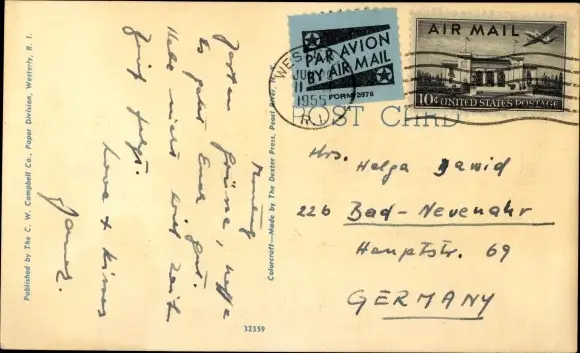 Published by The C. W. Campbell Co., Paper Division, Westerly, R. I.
Montag
Grüsse, hoffe
Es geht Euch gut.
Habe nicht viel Zeit
Brief folgt.
Love + kisses
Colorcraft—Made by The Dexter Press, Pearl River, N. Y.
32359
PAR AVION
BY AIR MAIL
FORM 2978
WEST
11
1955
R.I.
AIR MAIL
10¢ UNITED STATES POSTAGE
POST CARD
Mrs. Helga Dawid
22b Bad-Nevenahr
Hauptstr. 69
GERMANY